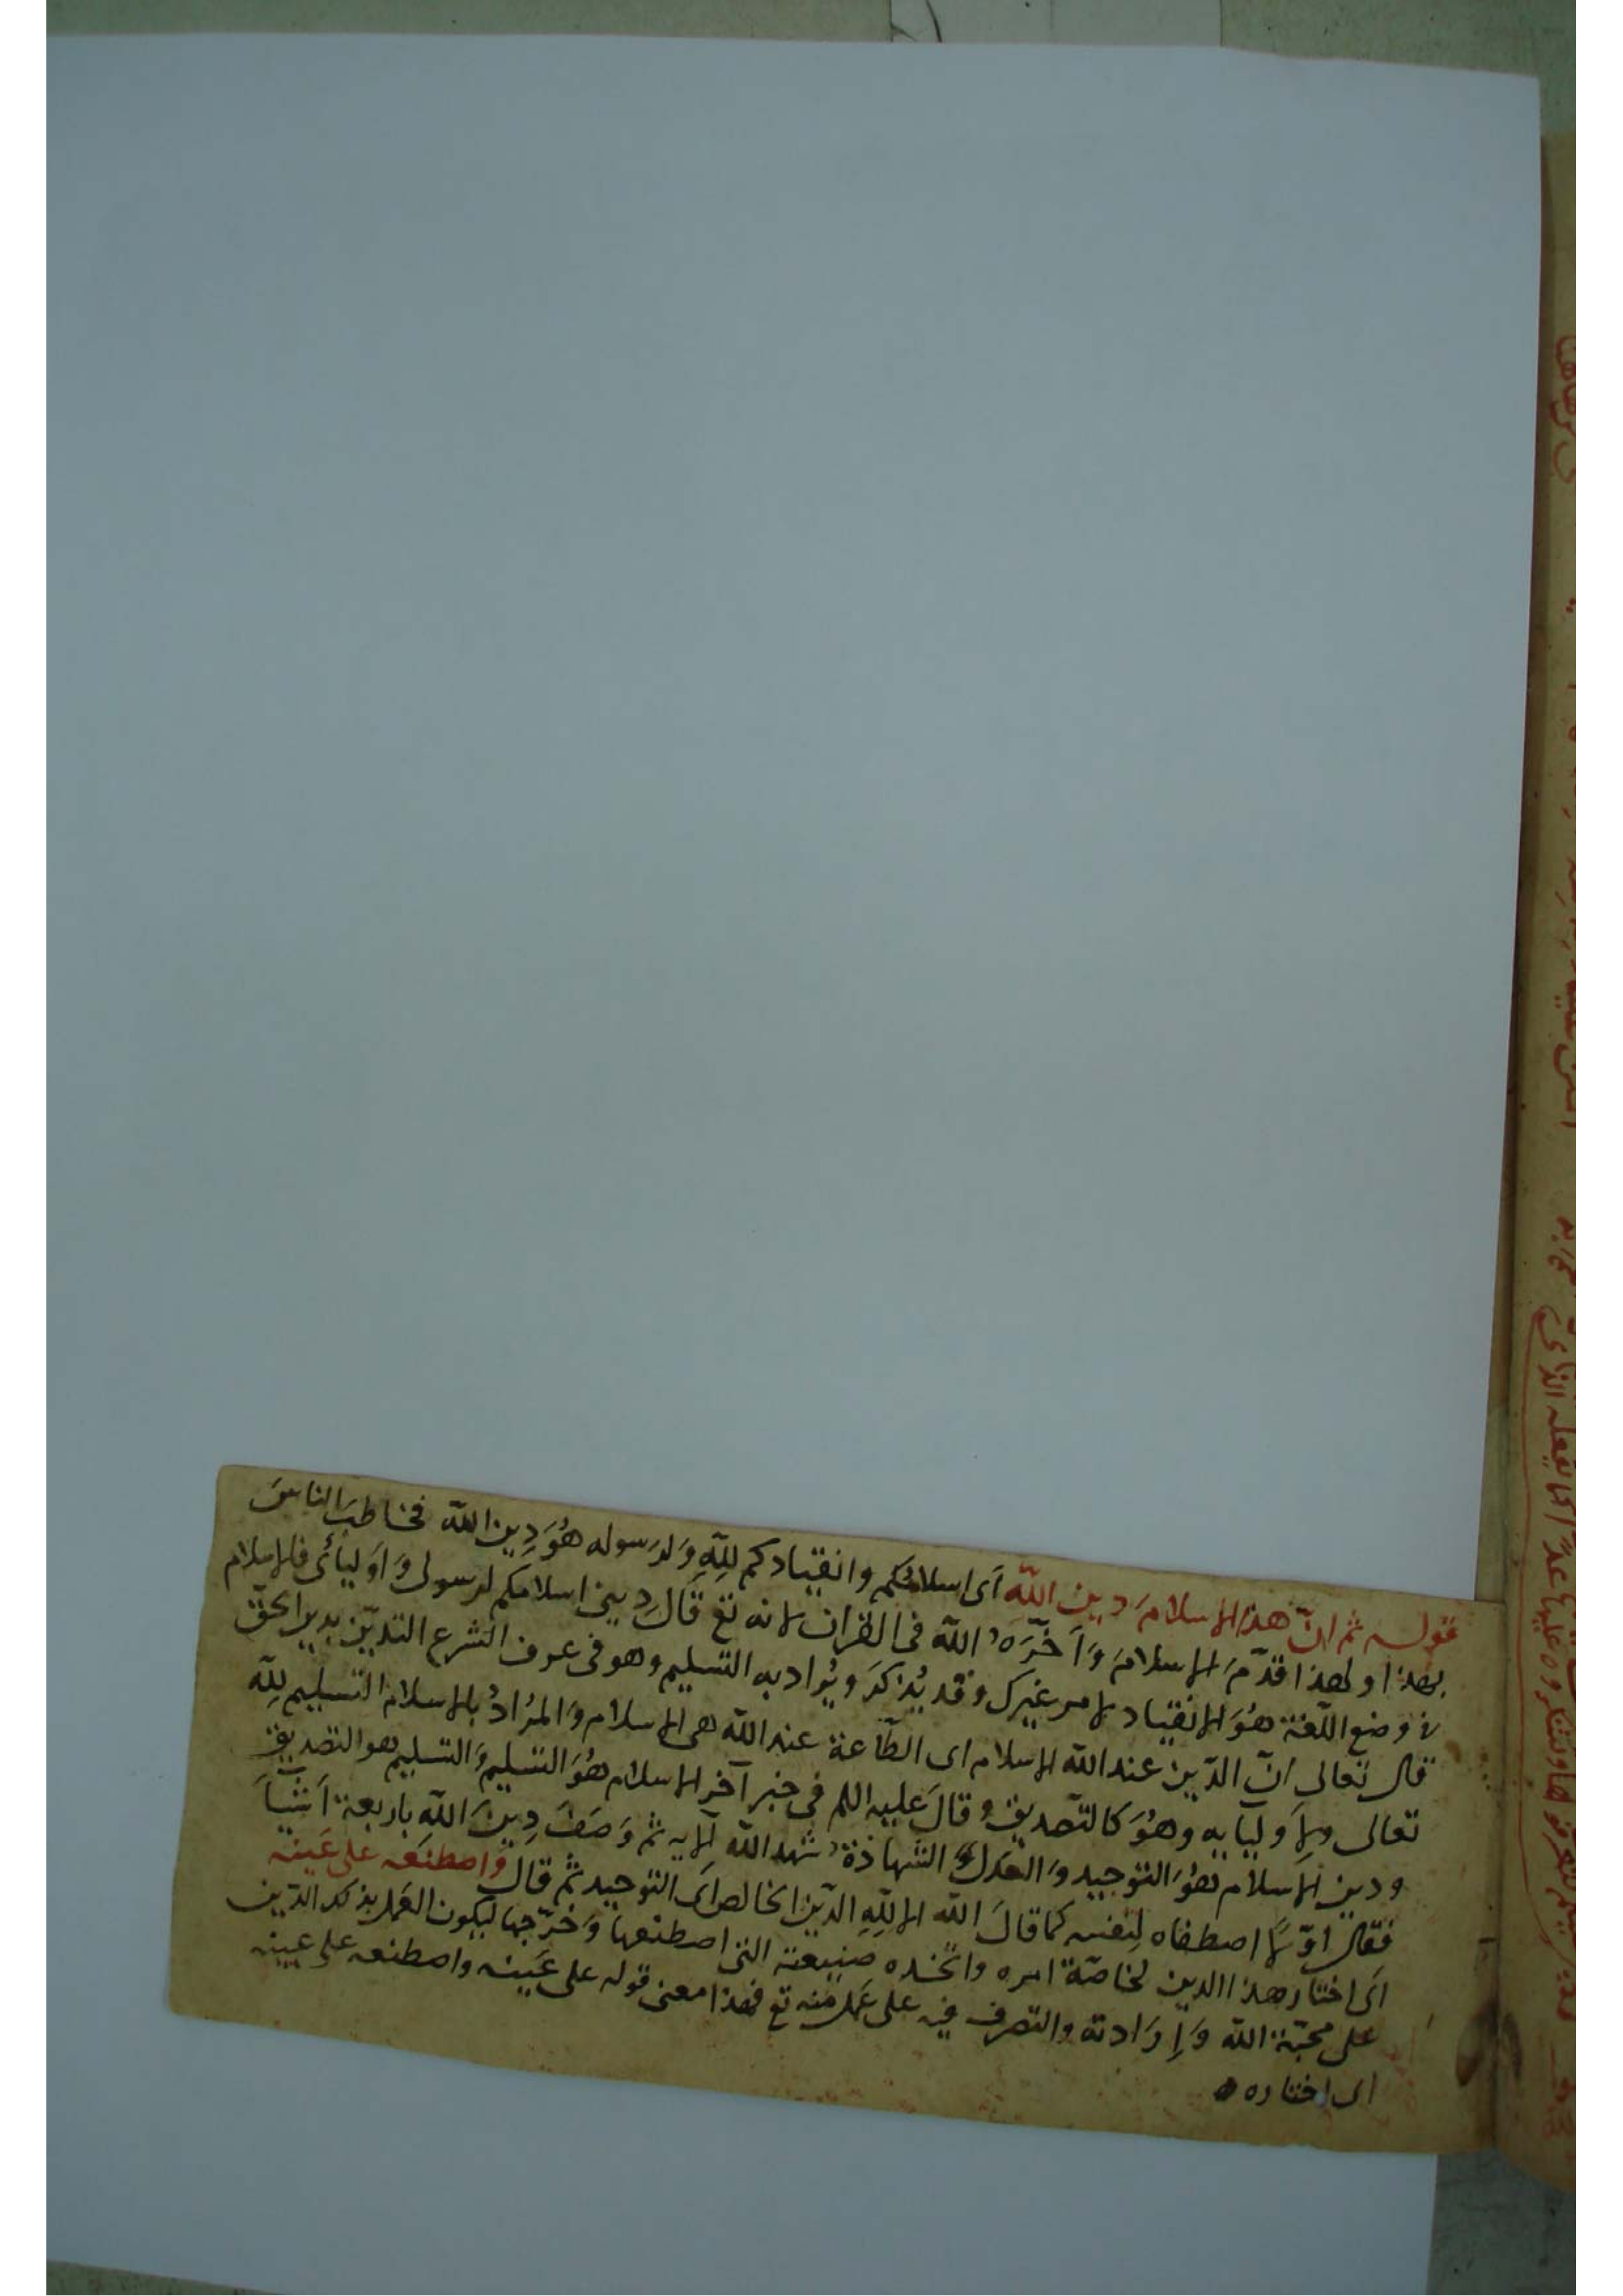 قوله ثم انّ هذا الاسلامَ دين اللّه اى اسلامُكُم وانقيادكم للّهِ وَلرَسوله هُوَ دِين اللّه فخاطبَ الناسَ
بهذا ولهذا قدّمَ الاسلامَ وَاَخّرَهُ اللّه فى القران لانه تع قال ديني اسلامكم لرسولى وَاَوليأئى فالاسلام
فى وضع اللّغة هُوَ الانقياد لامر غيرك وقد يُذكَر ويُراد به التسليم وهو فى عرف الشرع التديّن بدين الحقّ
قال تعالى انّ الدّين عند اللّه الاسلام اى الطّاعة عند اللّه هى الاسلام وَالمرُادُ بالاسلام التسليم للّه
تعالى ولاَوليايه وهُوَ كالتّصديق وقالَ عليه اللم فى خبر آخر الاسلام هُوَ التسليم وَالتسليم هو التصديق
ودين الاسلام هُوَ التوحيد وَالعدل الشهادة شهد اللّه الايه ثم وَصَفَ دِينَ اللّه باربعة اَشياَ
فقال اوّلًا اصطفاه لِنفسه كما قالَ اللّه الا للّهِ الدّين الخالص اَى التوحيد ثم قال وَاصطنَعَه على عَينه
اى اختار هذا الدين لخاصّة امره واتّخذه صنيعته التى اصطنعها وَخرّجها ليكون العَمل بذلك الدّين
على محبّة اللّه وَإرَادته والتصرف فيه على عَمل منه تع فهذا معنى قوله على عَينه واصطنعه على عينه
اى اختاره